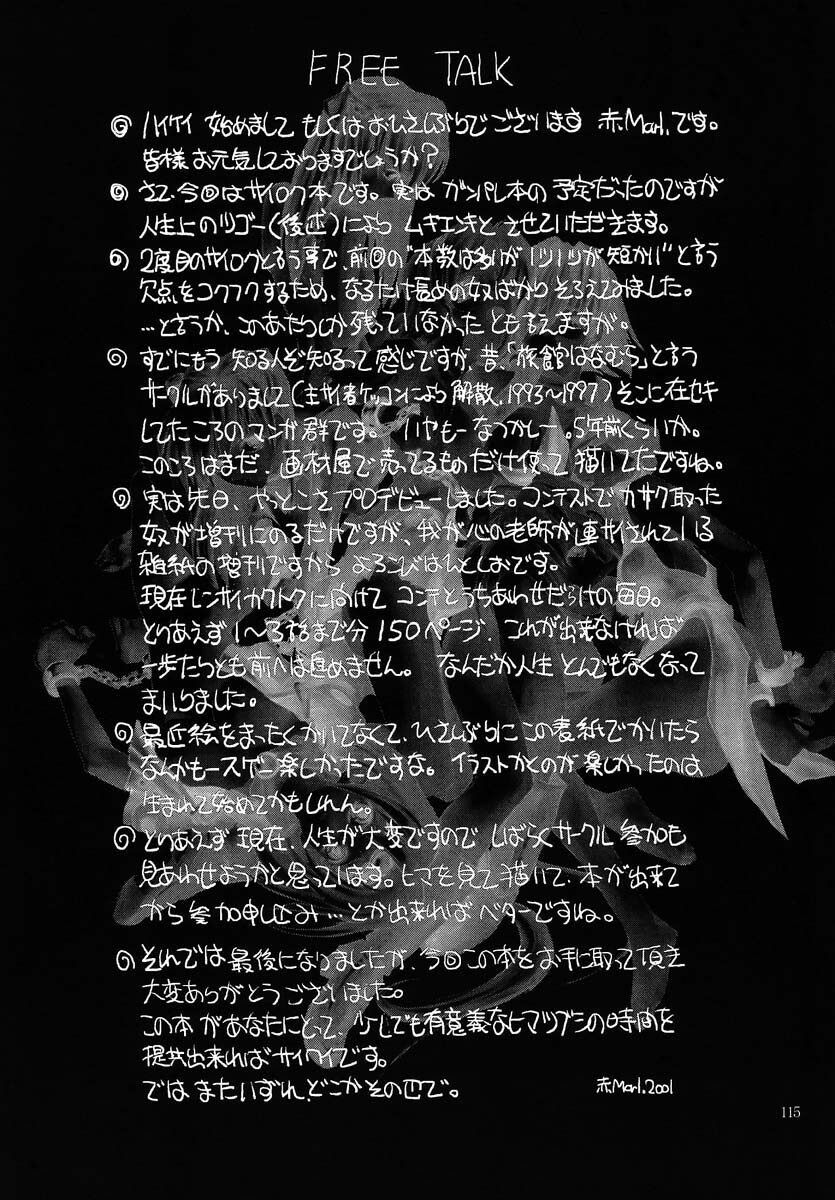 FREE TALK
◎ ハイケイ 始めまして もしくはおひさしぶりでございます 赤Marl.です。
皆様お元気しておりますでしょうか?
◎ さて、今回はサイロク本です。実は ガンパレ本の予定だったのですが
人生上のツゴー(後述)により ムキエンキと させていただきます。
◎ 2度目のサイロクと言う事で、前回の"本数は多いが1ツ1ツが短かい"と言う
欠点をコクフクするため、なるたけ長めの奴ばかり そろえてみました。
…と言うか、このあたりしか残っていなかった とも言えますが。
◎ すでにもう 知る人ぞ知るって感じですが、昔、「旅館はなむら」と言う
サークルがありまして(主サイ者ケッコンにより解散、1993〜1997)そこに在セキ
してたころのマンガ群です。 いやもーなつかしー。5年前くらいか。
このころはまだ、画材屋で売ってるものだけ使って描いてたですね。
◎ 実は先日、やっとこさプロデビューしました。コンテストでカサク取った
奴が増刊にのるだけですが、我が心の老師が連サイされている
雑紙の増刊ですから よろこびはんとしおです。
現在レンサイカクトクに向けて コンテとうちあわせだらけの毎日。
とりあえず1〜3話まで分150ページ、これが出来なければ
一歩たりとも前へは進めません。 なんだか人生とんでもなくなって
まいりました。
◎ 最近絵をまったくかいてなくて、ひさしぶりにこの表紙でかいたら
なんかもースゲー楽しかったですな。イラストかくのが楽しかったのは
生まれて始めてかもしれん。
◎ とりあえず現在、人生が大変ですので しばらくサークル参加も
見あわせようかと思っています。ヒマを見て描いて、本が出来て
から参加申し込み…とか出来ればベターですね。
◎ それでは最後になりましたが、今回この本をお手に取って頂き
大変ありがとうございました。
この本があなたにとって、少しでも有意義なヒマツブシの時間を
提供出来ればサイワイです。
ではまたいずれ、どこかその四で。
赤Marl.2001
115